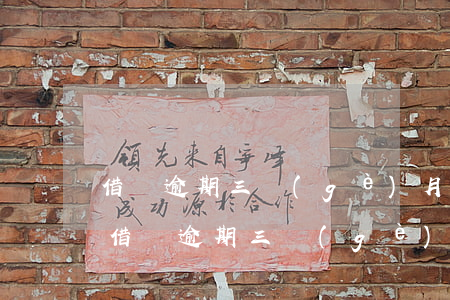 領先来自争峰
借 逾期三 (gè)月
成功源於合作
借 逾期三 (gè)